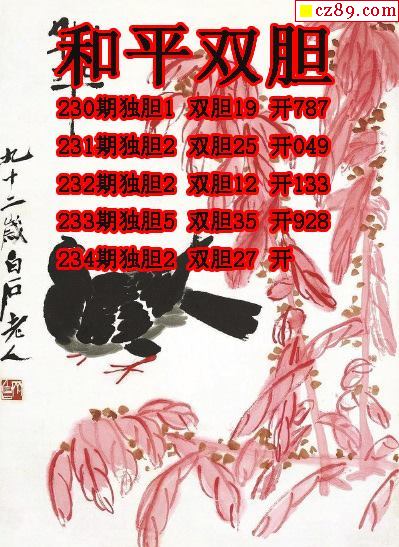 cz89.com
和平双胆
230期独胆1 双胆19 开787
231期独胆2 双胆25 开049
232期独胆2 双胆12 开133
233期独胆5 双胆35 开928
234期独胆2 双胆27 开
九十二岁白石老人